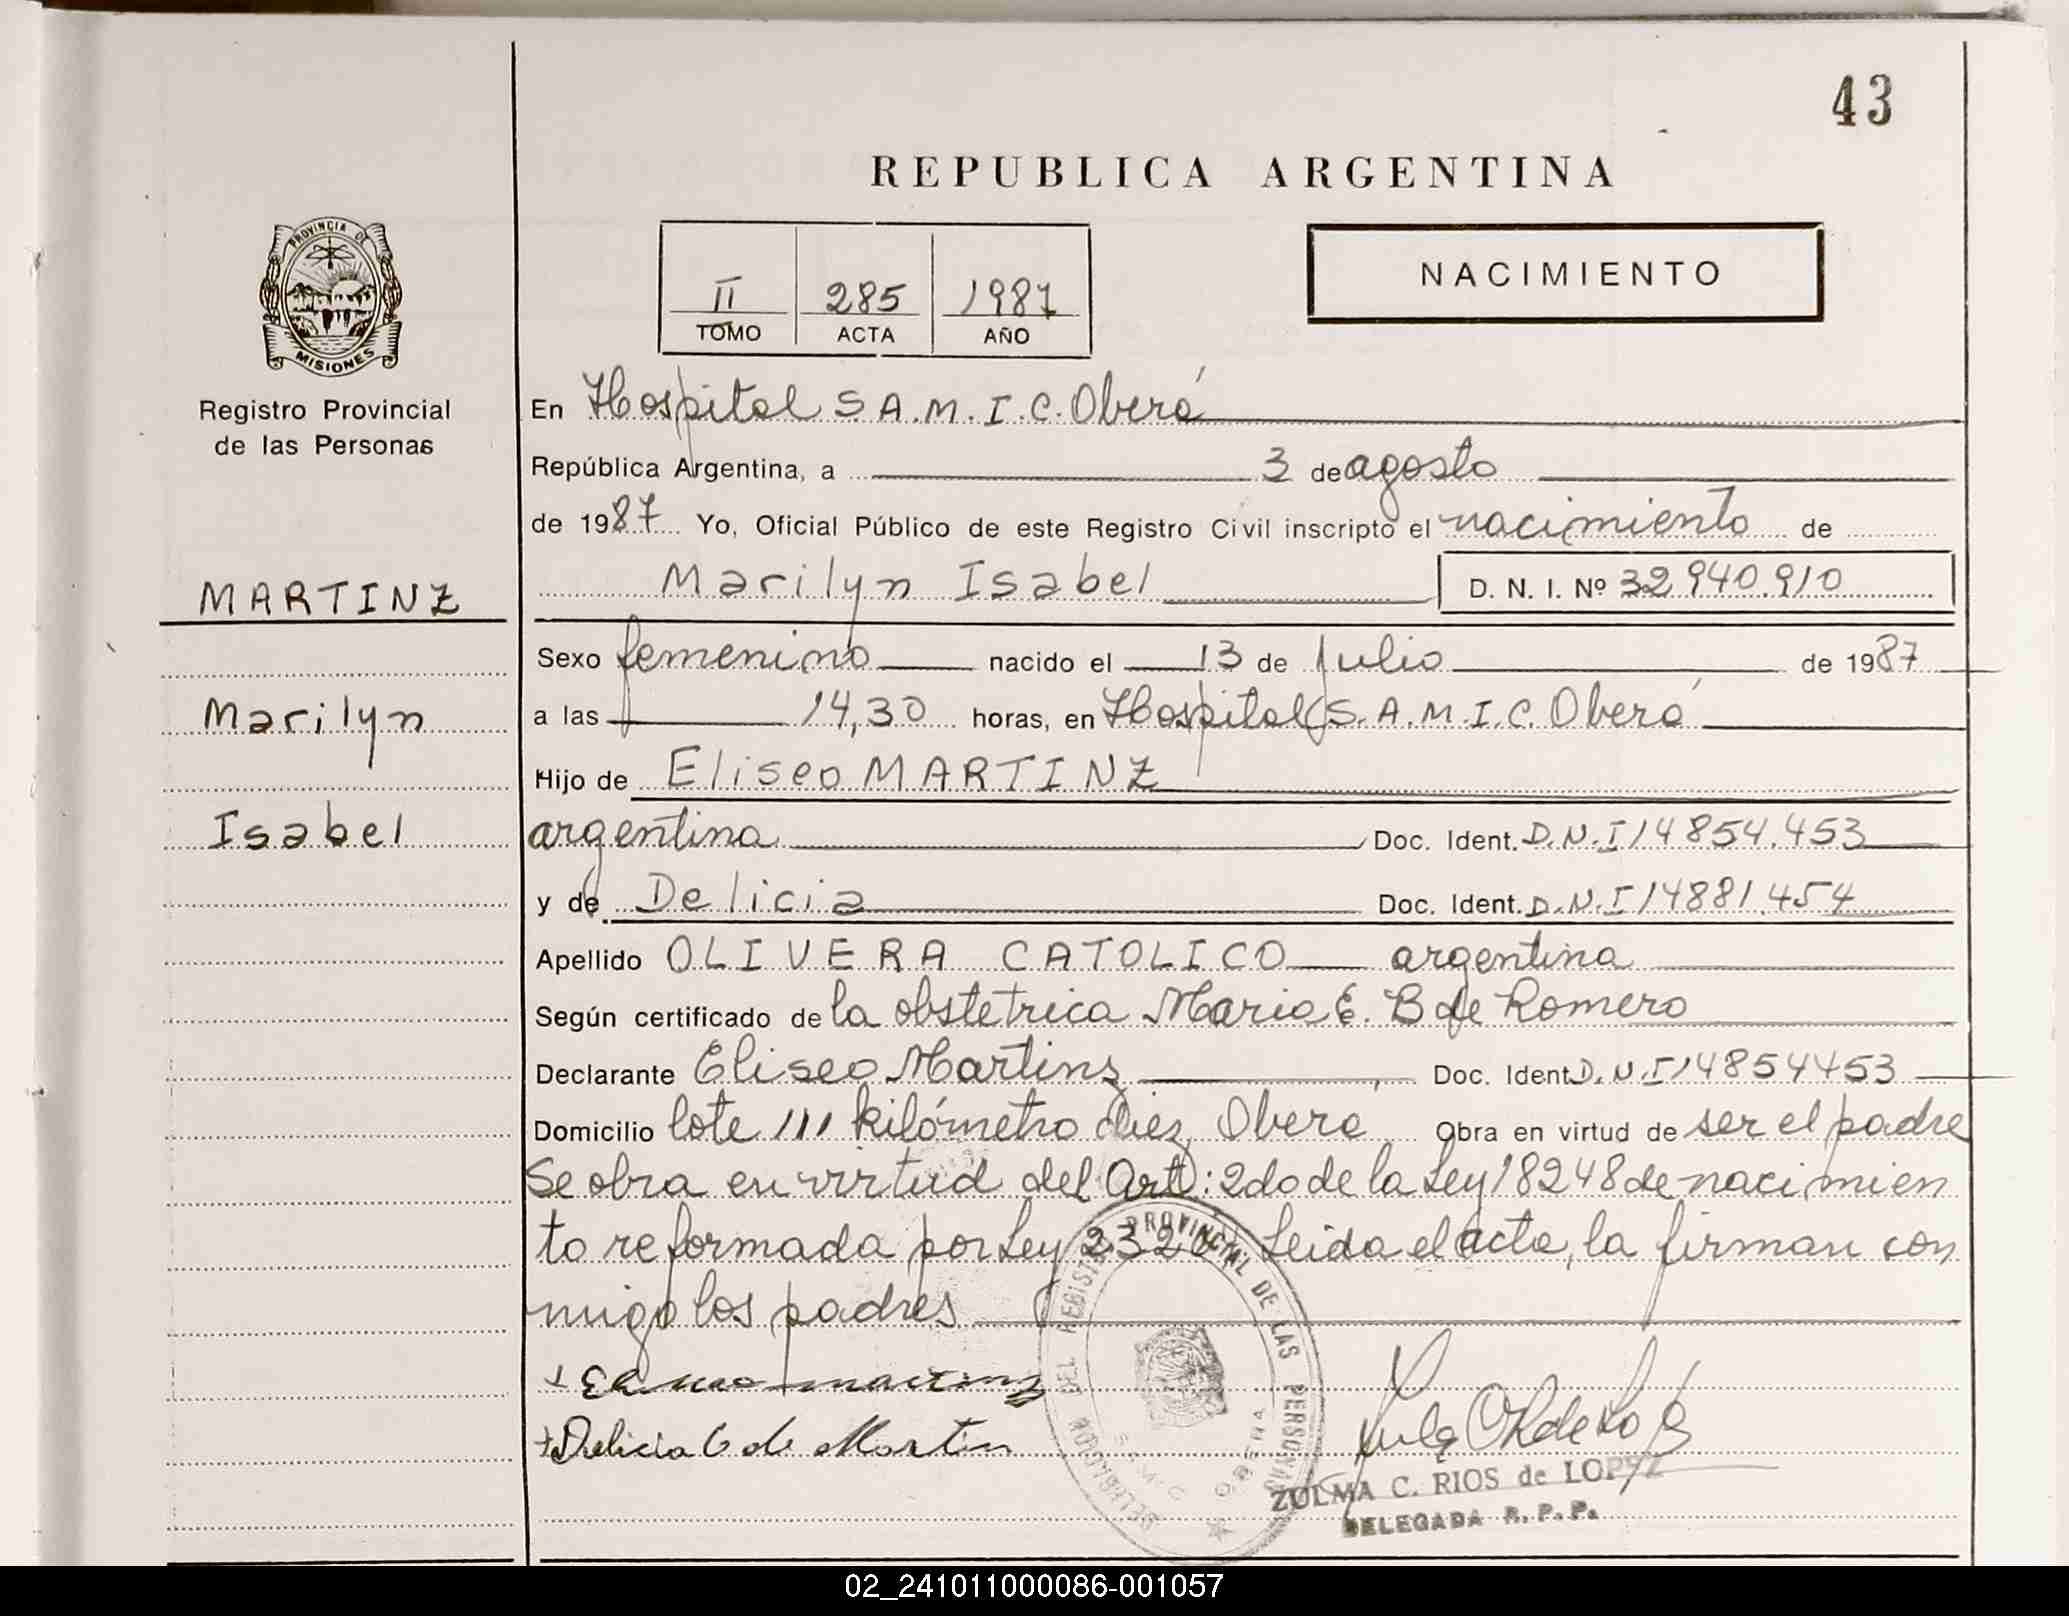 43
REPUBLICA ARGENTINA
PROVINCIA DE
MISIONES
Registro Provincial
de las Personas
II 285 1987
TOMO ACTA AÑO
NACIMIENTO
En Hospital S.A.M.I.C. Oberá
República Argentina, a 3 de agosto
de 1987 Yo, Oficial Público de este Registro Civil inscripto el nacimiento de
MARTINZ
Marilyn Isabel D. N. I. Nº 32.940.910
Sexo femenino nacido el 13 de Julio de 1987
Marilyn
a las 14,30 horas, en Hospital S.A.M.I.C. Oberá
Hijo de Eliseo MARTINZ
Isabel
argentina Doc. Ident. D.N.I 14854.453
y de Delicia Doc. Ident. D.N.I 14881.454
Apellido OLIVERA CATOLICO argentina
Según certificado de la obstetrica Maria E. B de Romero
Declarante Eliseo Martinz Doc. Ident D.N.I 14854453
Domicilio lote 111 kilómetro diez Oberá Obra en virtud de ser el padre
Se obra en virtud del Art: 2do de la Ley 18248 de nacimien
to reformada por Ley Leida el acta, la firman con
migo los padres
Eliseo Martinz
Delicia O de Martin
DEL REGISTRO PROVINCIAL DE LAS PERSONAS
S.A.M.I.C. OBERA
DELEGACION
ZULMA C. RIOS de LOPEZ
DELEGADA R. P. P.
02_241011000086-001057